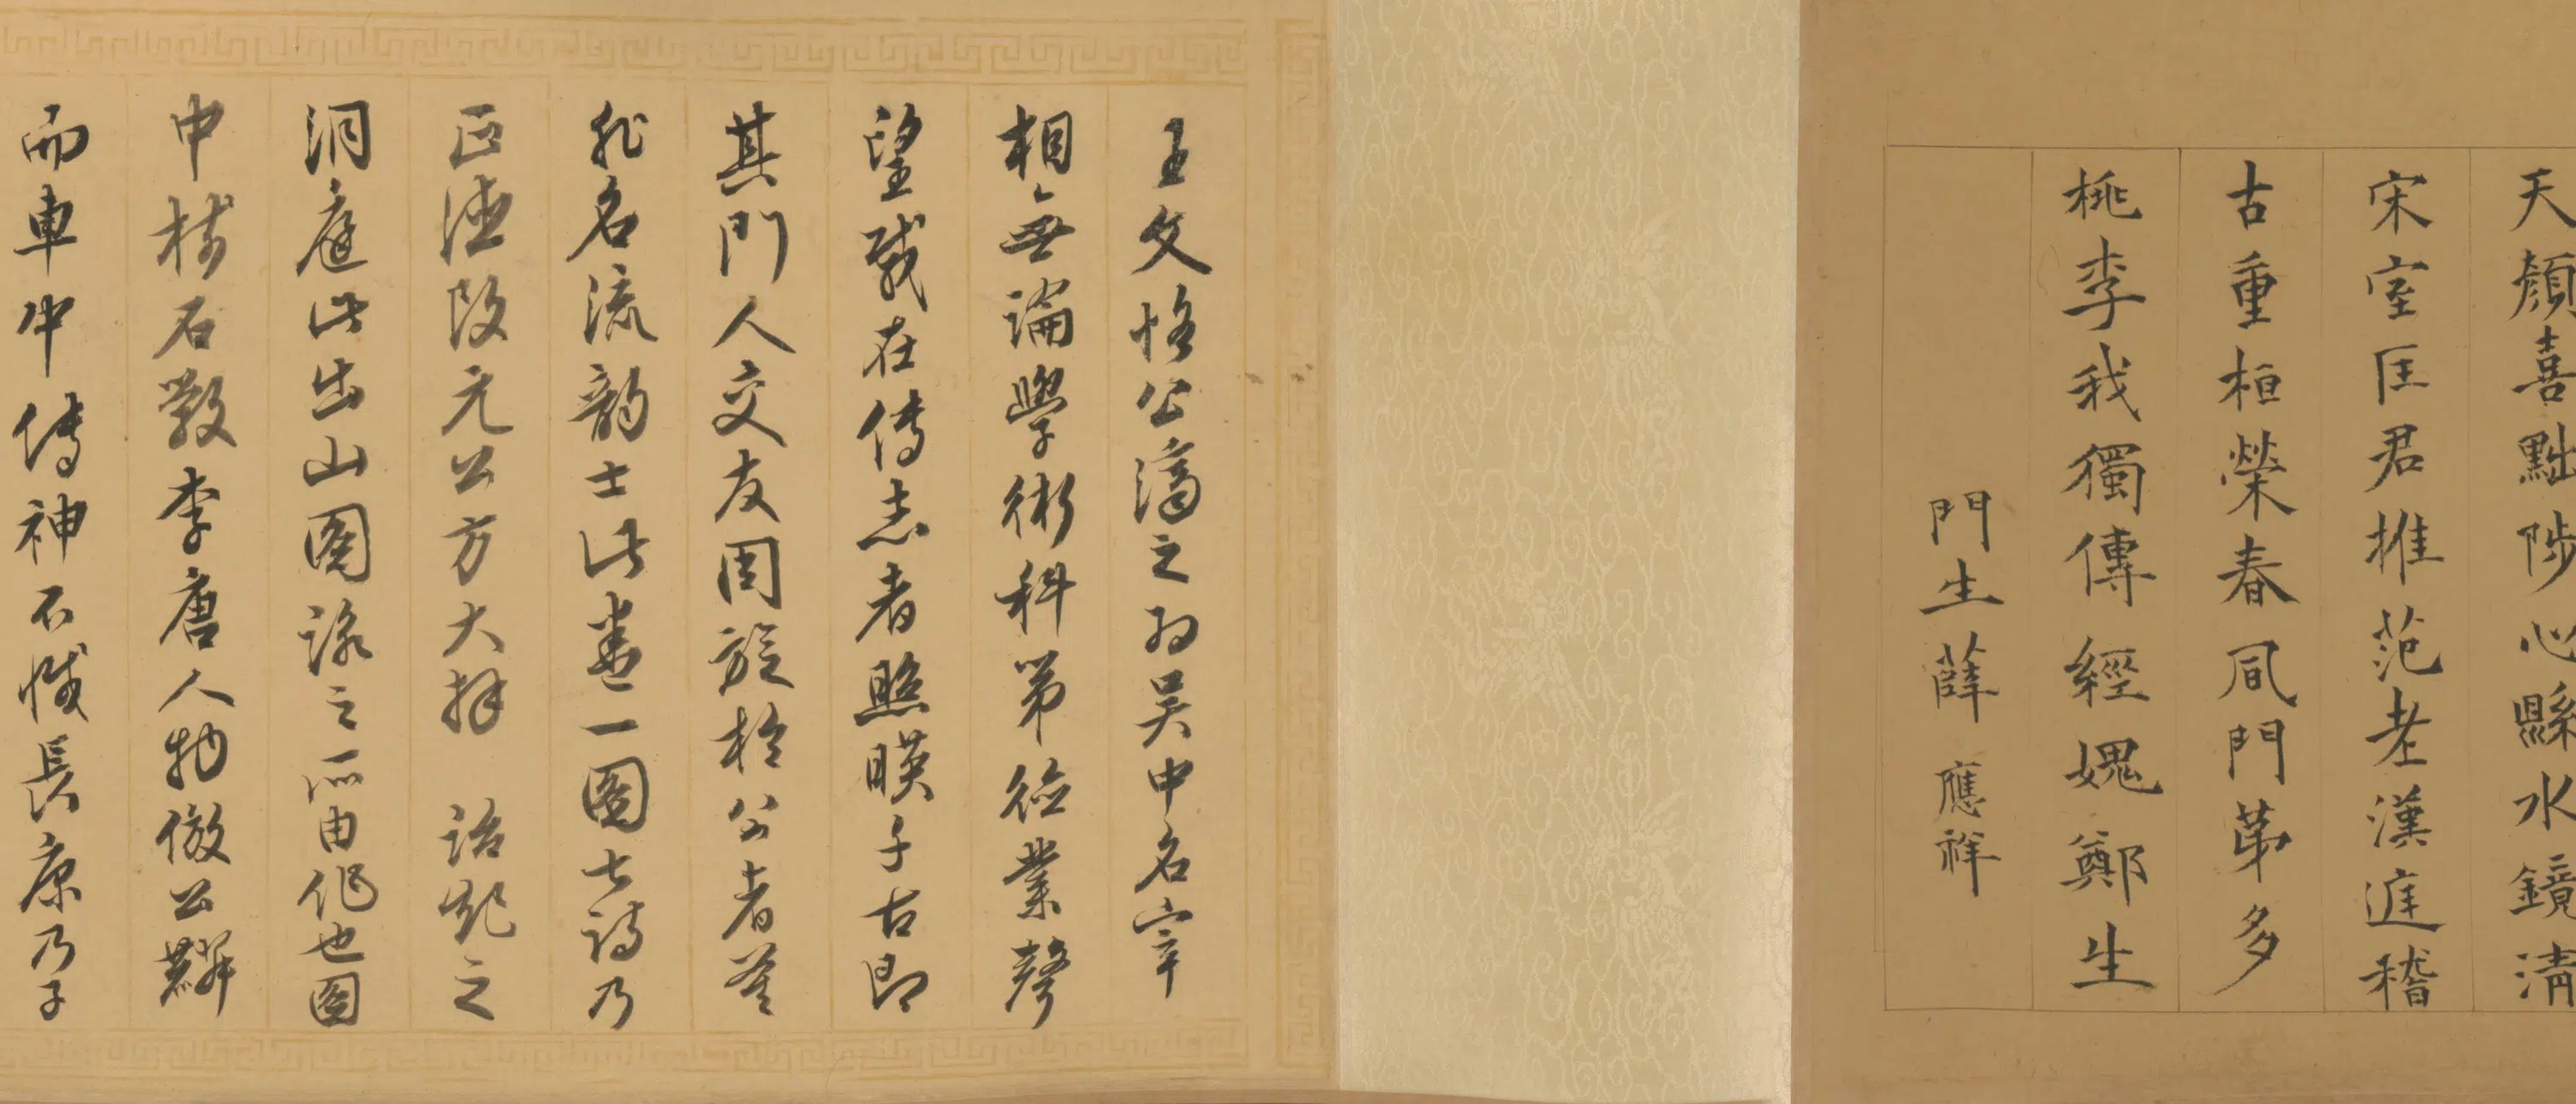 天顏喜黜陟心縣水鏡清
宋室匡君推范老漢廷稽
古重桓榮春風門第多
桃李我獨傳經媿鄭生
門生薛應祥
王文恪公濟之為吳中名宰
相無論學術科第德業聲
望載在傳志者照暎千古即
其門人交友周旋於公者蓋
非名流韵士此卷一圖七詩乃
正德改元公方大拜詔起之
洞庭此出山圖詠之所由作也圖
中樹石數李唐人物倣公麟
而車中傳神不慚長康乃子